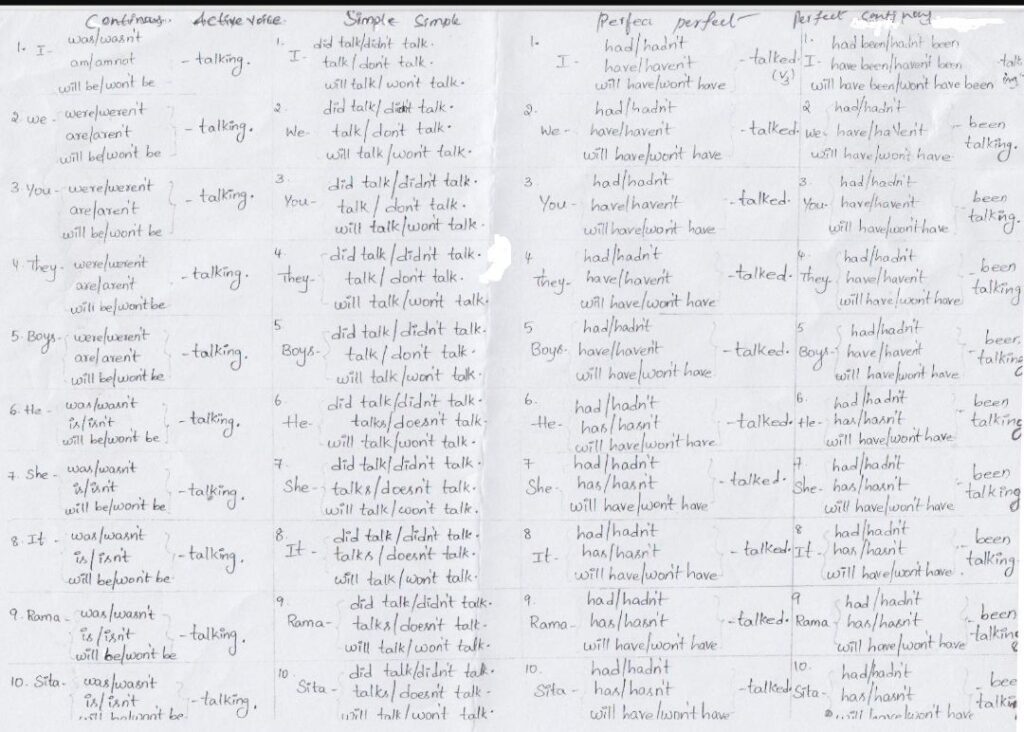 Continuous. Active voice. Simple Simple Perfect perfect Perfect continuous
1. I - was/wasn't 1. did talk/didn't talk. 1. had/hadn't 1. had been/hadn't been
am/am not - talking. I - talk/don't talk. I - have/haven't - talked. (V3) I - have been/haven't been - talking
will be/won't be will talk/won't talk. will have/won't have will have been/won't have been
2 we - were/weren't 2. did talk/didn't talk. 2. had/hadn't 2 had/hadn't
are/aren't - talking. We - talk/don't talk. We - have/haven't - talked. we - have/haven't - been talking.
will be/won't be will talk/won't talk. will have/won't have will have/won't have
3. You - were/weren't 3. did talk/didn't talk. 3. had/hadn't 3. had/hadn't
are/aren't - talking. You - talk/don't talk. You - have/haven't - talked. You - have/haven't - been talking.
will be/won't be will talk/won't talk. will have/won't have will have/won't have
4 They - were/weren't 4 did talk/didn't talk. 4 had/hadn't 4. had/hadn't
are/aren't - talking. They - talk/don't talk. They - have/haven't - talked. They have/haven't - been talking
will be/won't be will talk/won't talk. will have/won't have will have/won't have
5. Boys - were/weren't 5 did talk/didn't talk. 5 had/hadn't 5 had/hadn't
are/aren't - talking. Boys - talk/don't talk. Boys - have/haven't - talked. Boys - have/haven't - been talking
will be/won't be will talk/won't talk. will have/won't have will have/won't have
6. He - was/wasn't 6. did talk/didn't talk. 6. had/hadn't 6. had/hadn't
is/isn't - talking. He - talks/doesn't talk. He - has/hasn't - talked. He - has/hasn't - been talking
will be/won't be will talk/won't talk. will have/won't have will have/won't have
7. She - was/wasn't 7. did talk/didn't talk. 7 had/hadn't 7 had/hadn't
is/isn't - talking. She - talks/doesn't talk. She - has/hasn't - talked. She - has/hasn't - been talking
will be/won't be will talk/won't talk. will have/won't have will have/won't have
8. It - was/wasn't 8 did talk/didn't talk. 8 had/hadn't 8 had/hadn't
is/isn't - talking. It - talks/doesn't talk. It - has/hasn't - talked. It - has/hasn't - been talking.
will be/won't be will talk/won't talk. will have/won't have will have/won't have.
9. Rama - was/wasn't 9 did talk/didn't talk. 9. had/hadn't 9 had/hadn't
is/isn't - talking. Rama - talks/doesn't talk. Rama - has/hasn't - talked. Rama has/hasn't - been talking
will be/won't be will talk/won't talk. will have/won't have will have/won't have
10. Sita - was/wasn't 10. did talk/didn't talk. 10. had/hadn't 10. had/hadn't
is/isn't - talking. Sita - talks/doesn't talk. Sita - has/hasn't - talked. Sita - has/hasn't - bee talkin
will be/won't be will talk/won't talk. will have/won't have will have/won't have